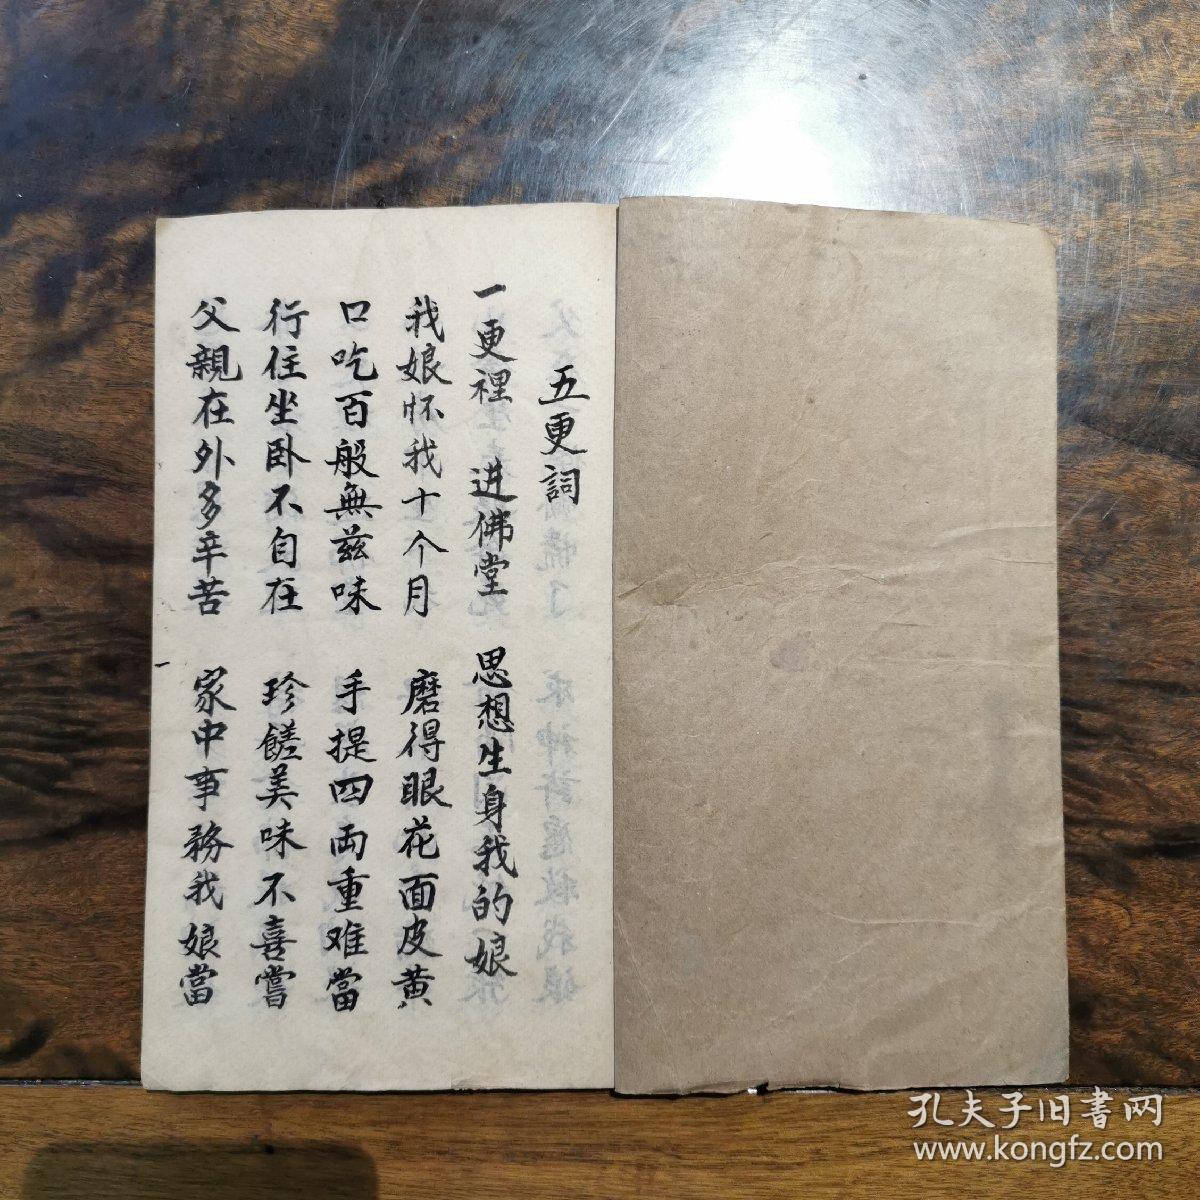 五更詞
一更裡 进佛堂 思想生身我的娘
我娘怀我十个月 磨得眼花面皮黄
口吃百般無兹味 手提四両重难當
行住坐卧不自在 珍饈美味不喜嘗
父親在外多辛苦 家中事務我娘當
孔夫子旧書网
www.kongfz.com